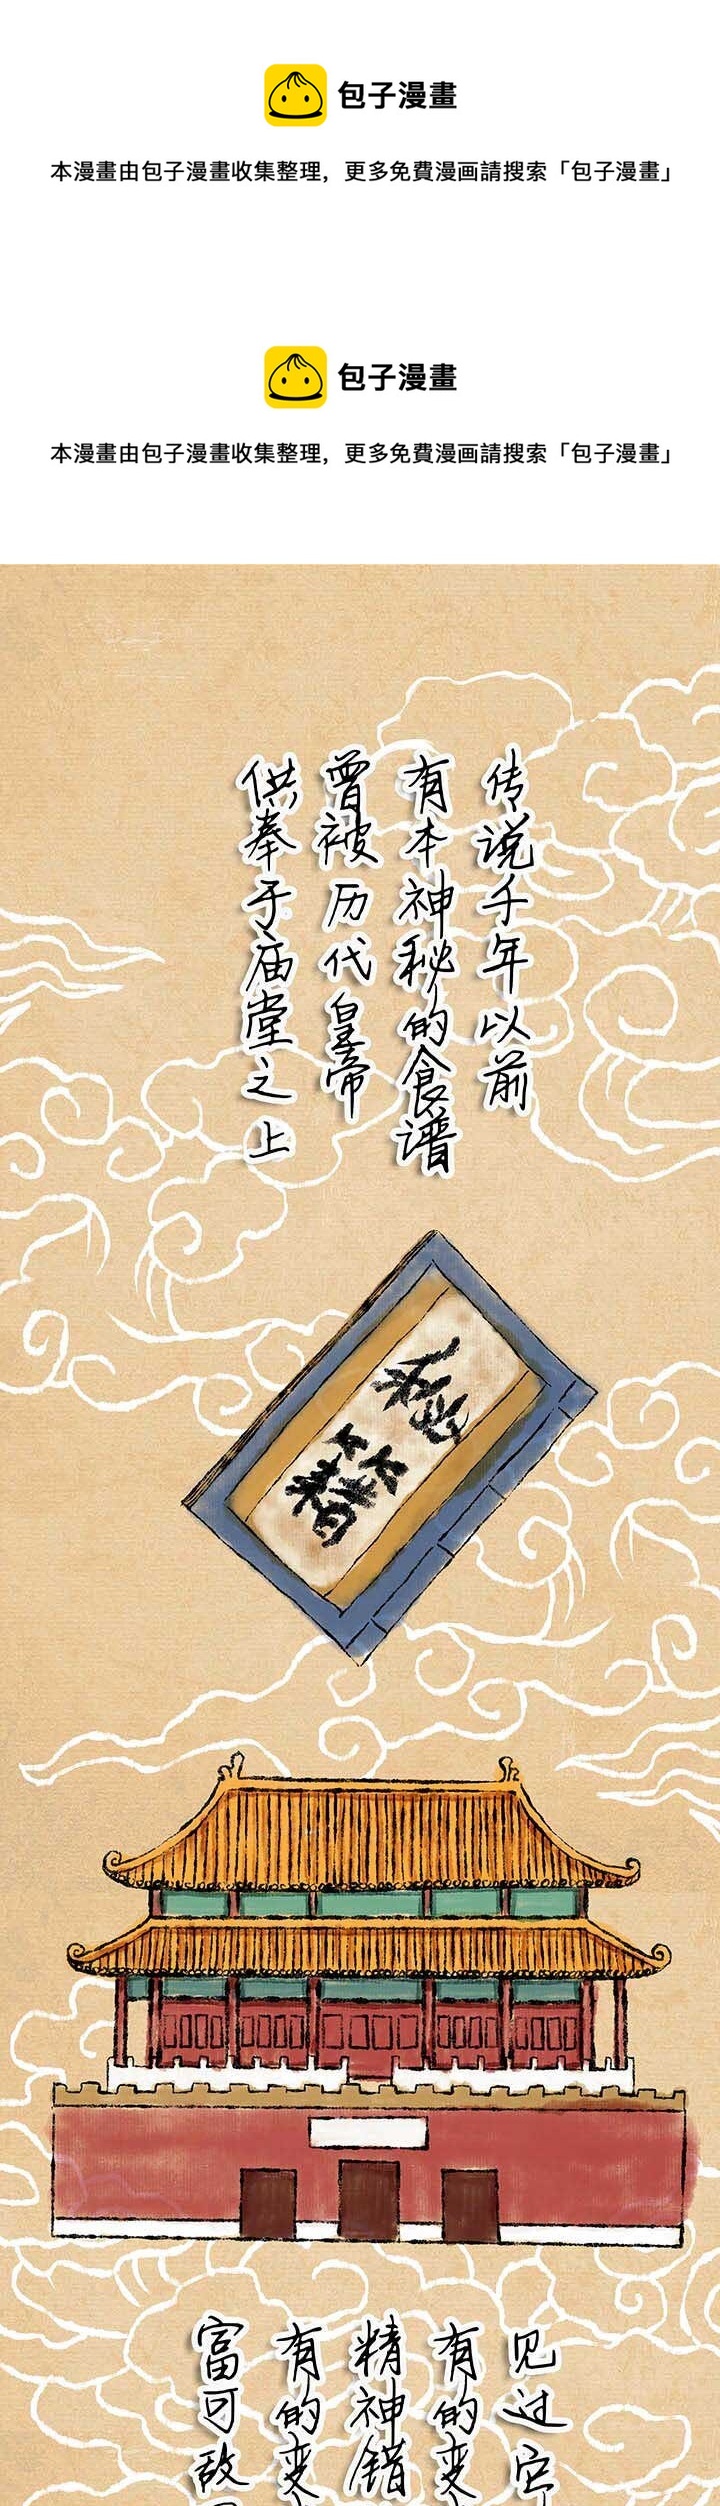 包子漫畫
本漫畫由包子漫畫收集整理，更多免費漫画請搜索「包子漫畫」
包子漫畫
本漫畫由包子漫畫收集整理，更多免費漫画請搜索「包子漫畫」
传说千年以前
有本神秘的食谱
曾被历代皇帝
供奉于庙堂之上
秘籍
见过它
有的变
精神错
有的变
富可敌